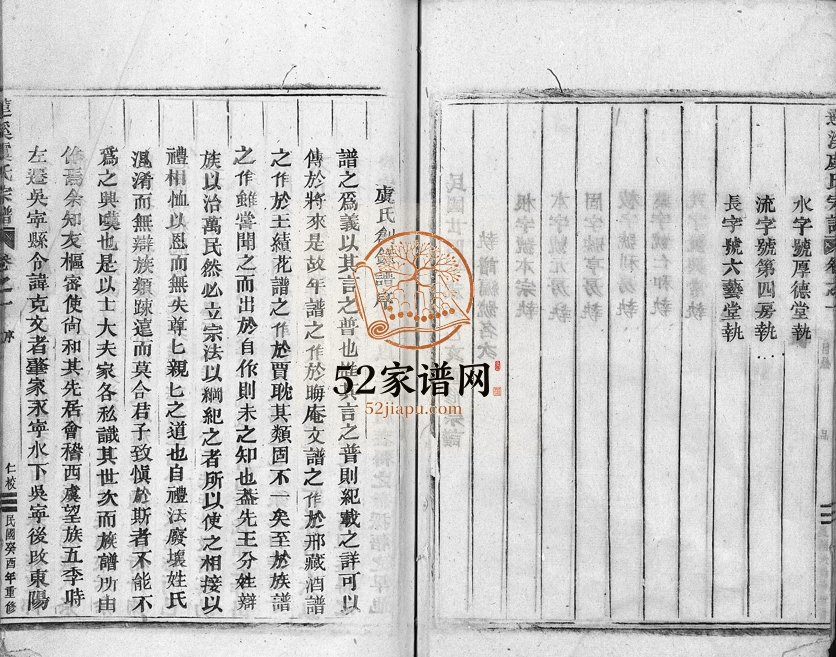 水字號厚德堂執
流字號第四房執
長字號六藝堂執
虞氏創
譜序
譜之爲義以其言之普也惟其言之普則紀載之詳可以
傳於將來是故年譜之作於晦庵文譜之作於邢藏酒譜
之作於王績花譜之作於賈耽其類固不一矣至於族譜
之作雖嘗聞之而出於自作則未之知也蓋先王分姓辯
族以治萬民然必立宗法以綱紀之者所以使之相接以
禮相恤以恩而無失尊匕親匕之道也自禮法廢壞姓氏
混淆而無辯族類踈遠而莫合君子致愼於斯者不能不
爲之興嘆也是以士大夫家各私識其世次而族譜所由
作焉余知友樞密使尙和其先居會稽西虞望族五季時
左遷吳寧縣令諱克文者肇家永寧水下吳寧後改東陽
蓮溪虞氏宗譜
卷之一
序
仁校
民國癸酉年重修
52家谱网
52jiapu.com